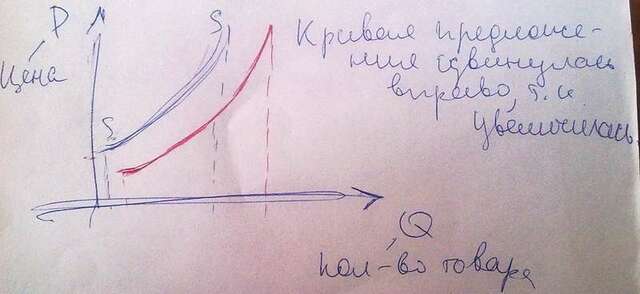 P
Цена
S
S
Кривая предложе-
ния сдвинулась
вправо, т. к
увеличилась
Q
кол-во товара